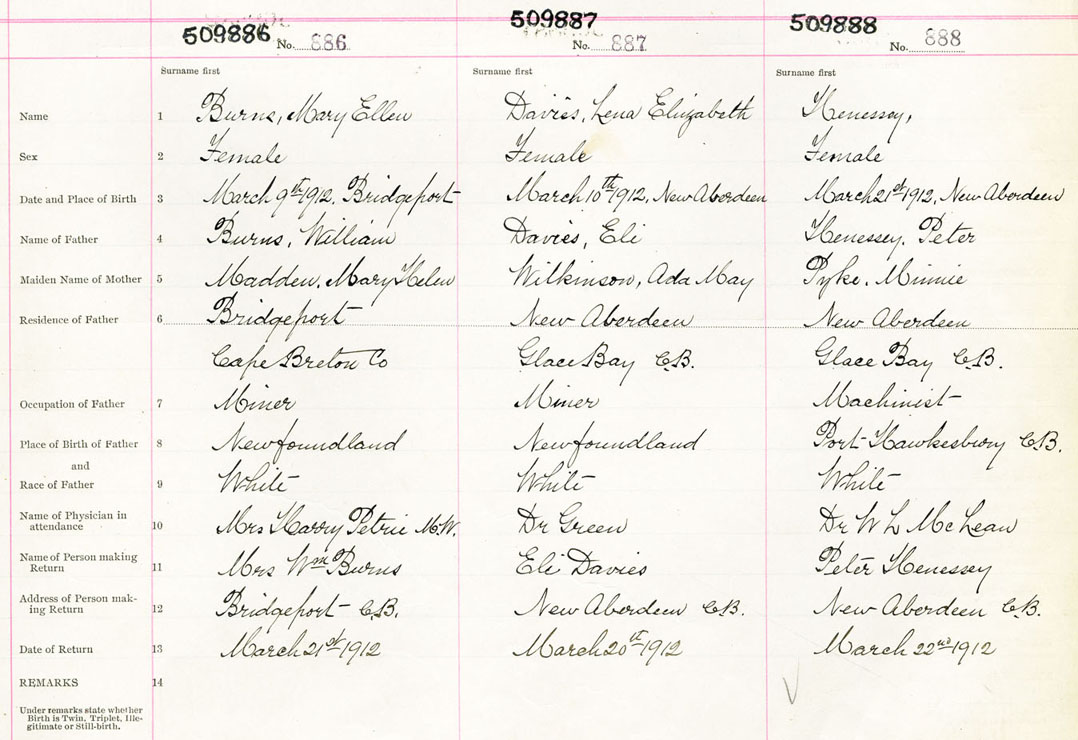 509886 No. 886 509887 No. 887 509888 No. 888
Surname first Surname first Surname first
Name 1 Burns, Mary Ellen Davies, Lena Elizabeth Henessey,
Sex 2 Female Female Female
Date and Place of Birth 3 March 9th 1912, Bridgeport March 10th 1912, New Aberdeen March 21st 1912, New Aberdeen
Name of Father 4 Burns, William Davies, Eli Henessey, Peter
Maiden Name of Mother 5 Madden, Mary Helen Wilkinson, Ada May Pyke, Minnie
Residence of Father 6 Bridgeport New Aberdeen New Aberdeen
Cape Breton Co Glace Bay C.B. Glace Bay C.B.
Occupation of Father 7 Miner Miner Machinist
Place of Birth of Father 8 Newfoundland Newfoundland Port Hawkesbury C.B.
and
Race of Father 9 White White White
Name of Physician in
attendance 10 Mrs Harry Petrie M.W. Dr Green Dr W L McLean
Name of Person making
Return 11 Mrs Wm Burns Eli Davies Peter Henessey
Address of Person mak-
ing Return 12 Bridgeport C.B. New Aberdeen C.B. New Aberdeen C.B.
Date of Return 13 March 21st 1912 March 20th 1912 March 22nd 1912
REMARKS 14
Under remarks state whether
Birth is Twin, Triplet, Ille-
gitimate or Still-birth.